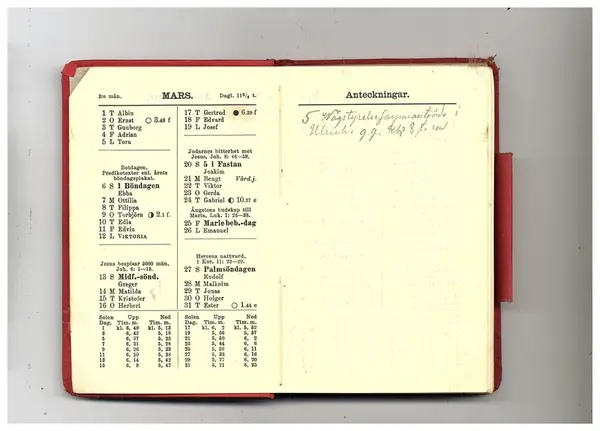 3:e mån. MARS. Dagl. 11¾ t.
1 T Albin
2 O Ernst 3.48 f
3 T Gunborg
4 F Adrian
5 L Tora
Botdagen.
Predikotexter enl. årets
böndagsplakat.
6 S 1 Böndagen
Ebba
7 M Ottilia
8 T Filippa
9 O Torbjörn 2.1 f.
10 T Edla
11 F Edvin
12 L VIKTORIA
Jesus bespisar 5000 män,
Joh. 6: 1—15.
13 S Midf.-sönd.
Greger
14 M Matilda
15 T Kristofer
16 O Herbert
17 T Gertrud 6.39 f
18 F Edvard
19 L Josef
Judarnes bitterhet mot
Jesus, Joh. 8: 46—59.
20 S 5 i Fastan
Joakim
21 M Bengt Vårdj.
22 T Viktor
23 O Gerda
24 T Gabriel 10.37 e
Ängelens budskap till
Maria, Luk. 1: 26—38.
25 F Marie beb.-dag
26 L Emanuel
Herrens nattvard,
1 Kor. 11: 23—29.
27 S Palmsöndagen
Rudolf
28 M Malkolm
29 T Jonas
30 O Holger
31 T Ester 1.44 e
Solen Upp Ned
Dag. Tim. m. Tim. m.
1 kl. 6, 49 kl. 5, 13
3 6, 43 5, 18
5 6, 37 5, 23
7 6, 31 5, 28
9 6, 26 5, 33
11 6, 20 5, 38
13 6, 14 5, 42
15 6, 8 5, 47
Solen Upp Ned
Dag. Tim. m. Tim. m.
17 kl. 6, 2 kl. 5, 52
19 5, 56 5, 57
21 5, 50 6, 2
23 5, 44 6, 6
25 5, 39 6, 11
27 5, 33 6, 16
29 5, 27 6, 20
31 5, 21 6, 25
Anteckningar.
5 Vägstyrelsesammanträde i
Ulrich. g.g. kl. 8 f.